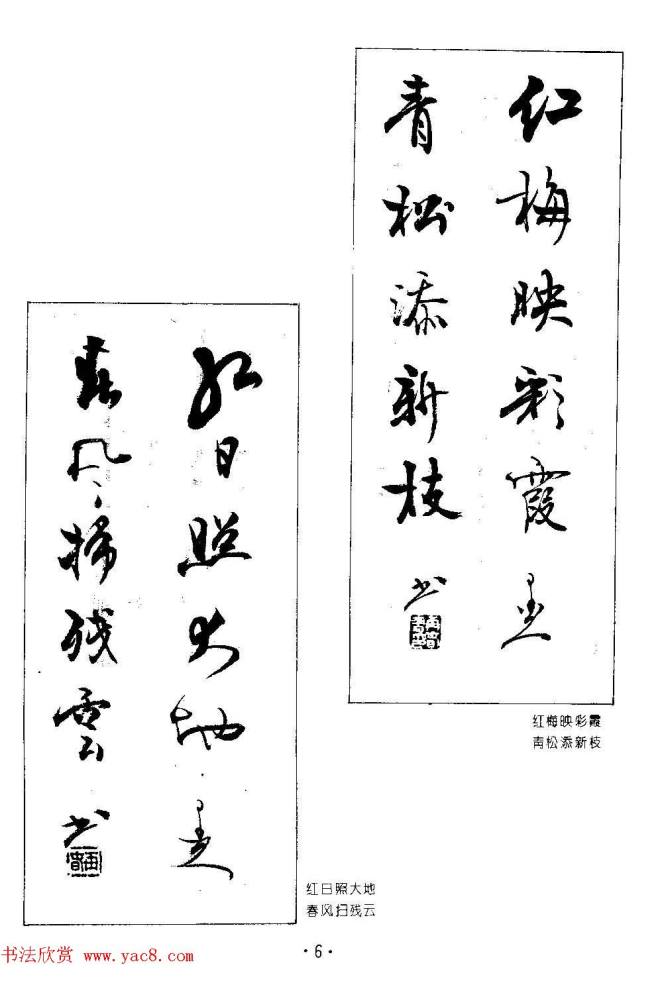 红梅映彩霞
青松添新枝
书
红梅映彩霞
青松添新枝
红日照大地
春风扫残雲
书
红日照大地
春风扫残云
·6·
书法欣赏 www.yac8.com